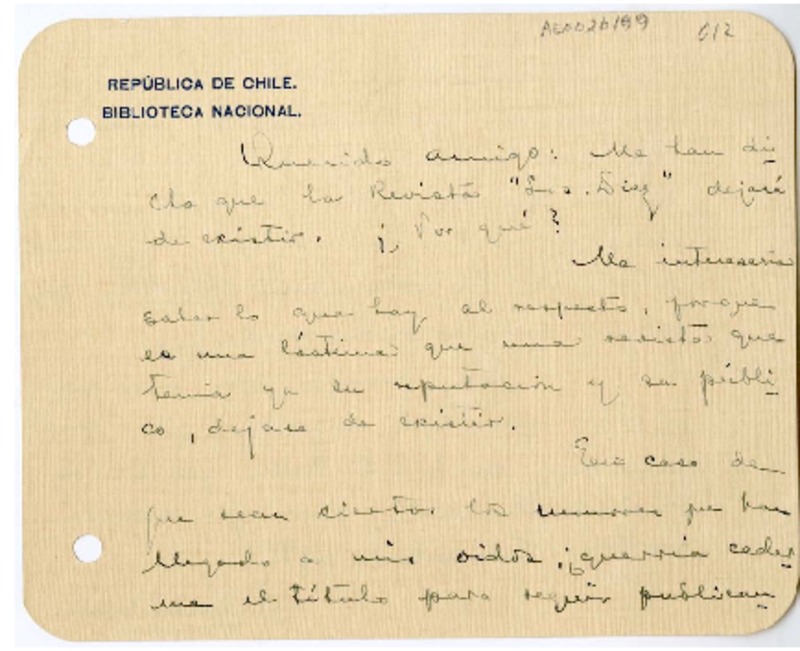 AE0020199 612
REPÚBLICA DE CHILE.
BIBLIOTECA NACIONAL.
Querido amigo: Me han di
cho que la Revista "Los Diez" dejará
de existir. ¿Por qué?
Me interesaría
saber lo que hay al respecto, porque
es una lástima que una revista que
tenía ya su reputación y su públi
co, dejase de existir.
En caso de
que sean ciertos los rumores que han
llegado a mis oidos, ¿querría ceder
me el título para seguir publican